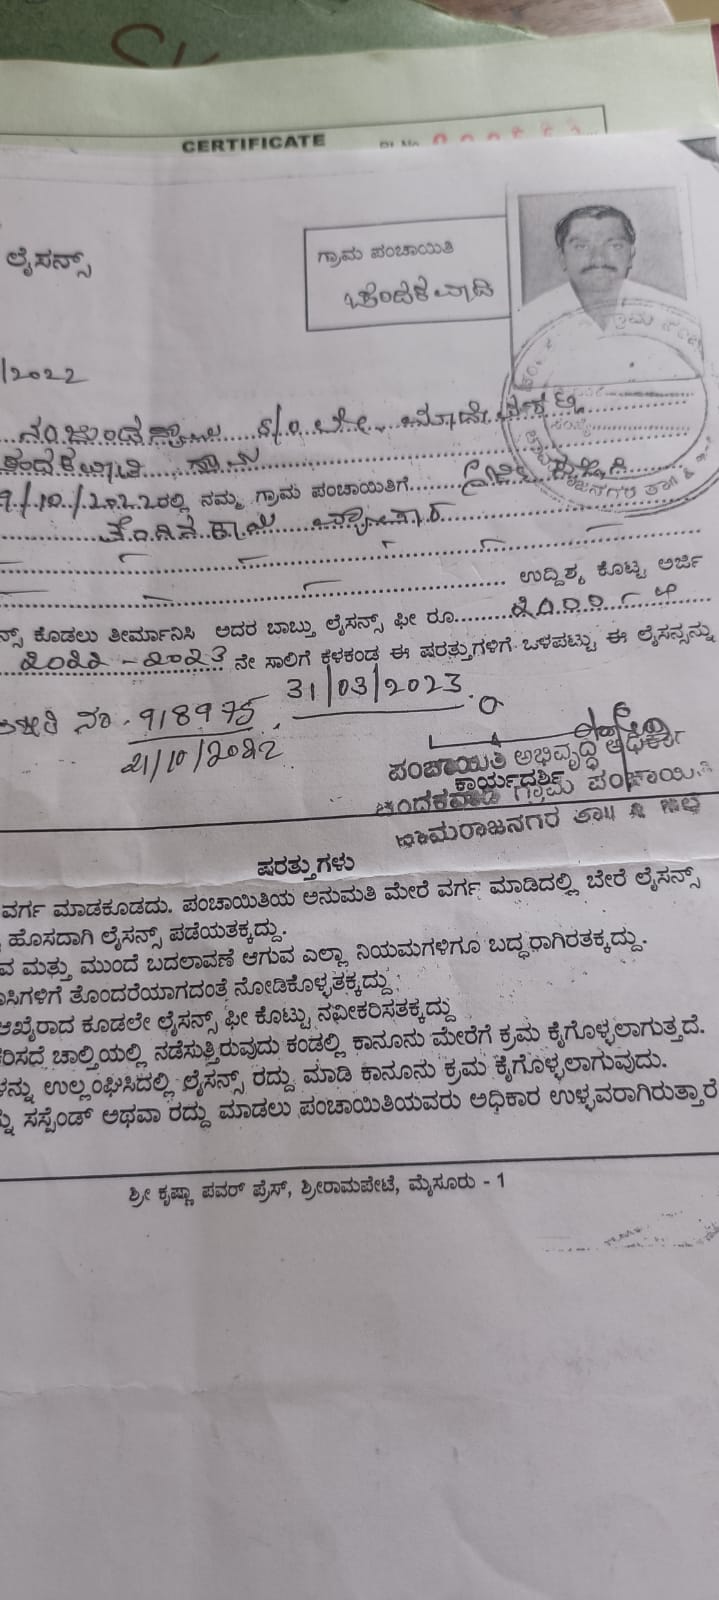 CERTIFICATE
ಲೈಸನ್ಸ್
ಗ್ರಾಮ ಪಂಚಾಯಿತಿ
/2022
9/10/2022ರಲ್ಲಿ ನಮ್ಮ ಗ್ರಾಮ ಪಂಚಾಯಿತಿಗೆ
ತೆಂಗಿನ ಕಾಯಿ ವ್ಯಾಪಾರ
ಉದ್ದಿಶ್ಯ ಕೊಟ್ಟ ಅರ್ಜಿ
ನ್ಸ್ ಕೊಡಲು ತೀರ್ಮಾನಿಸಿ ಅದರ ಬಾಬ್ತು ಲೈಸನ್ಸ್ ಫೀ ರೂ
೨೦೨೨-೨೦೨೩ ನೇ ಸಾಲಿಗೆ ಕೆಳಕಂಡ ಈ ಷರತ್ತುಗಳಿಗೆ ಒಳಪಟ್ಟು ಈ ಲೈಸನ್ಸನ್ನು
31/03/2023.
ನಂ. 918975
21/10/2022
ಪಂಚಾಯಿತಿ ಅಭಿವೃದ್ಧಿ ಅಧಿಕಾರಿ
ಕಾರ್ಯದರ್ಶಿ
ಗ್ರಾಮ ಪಂಚಾಯಿತಿ
ಚಾಮರಾಜನಗರ ತಾ॥ & ಜಿಲ್ಲೆ
ಷರತ್ತುಗಳು
ವರ್ಗ ಮಾಡಕೂಡದು. ಪಂಚಾಯಿತಿಯ ಅನುಮತಿ ಮೇರೆ ವರ್ಗ ಮಾಡಿದಲ್ಲಿ ಬೇರೆ ಲೈಸನ್ಸ್
ಹೊಸದಾಗಿ ಲೈಸನ್ಸ್ ಪಡೆಯತಕ್ಕದ್ದು.
ವ ಮತ್ತು ಮುಂದೆ ಬದಲಾವಣೆ ಆಗುವ ಎಲ್ಲಾ ನಿಯಮಗಳಿಗೂ ಬದ್ಧರಾಗಿರತಕ್ಕದ್ದು.
ಸಿಗಳಿಗೆ ತೊಂದರೆಯಾಗದಂತೆ ನೋಡಿಕೊಳ್ಳತಕ್ಕದ್ದು
ಆಖೈರಾದ ಕೂಡಲೇ ಲೈಸನ್ಸ್ ಫೀ ಕೊಟ್ಟು ನವೀಕರಿಸತಕ್ಕದ್ದು
ರಿಸದೆ ಚಾಲ್ತಿಯಲ್ಲಿ ನಡೆಸುತ್ತಿರುವುದು ಕಂಡಲ್ಲಿ ಕಾನೂನು ಮೇರೆಗೆ ಕ್ರಮ ಕೈಗೊಳ್ಳಲಾಗುತ್ತದೆ.
ಳನ್ನು ಉಲ್ಲಂಘಿಸಿದಲ್ಲಿ ಲೈಸನ್ಸ್ ರದ್ದು ಮಾಡಿ ಕಾನೂನು ಕ್ರಮ ಕೈಗೊಳ್ಳಲಾಗುವುದು.
ಸಸ್ಪೆಂಡ್ ಅಥವಾ ರದ್ದು ಮಾಡಲು ಪಂಚಾಯಿತಿಯವರು ಅಧಿಕಾರ ಉಳ್ಳವರಾಗಿರುತ್ತಾರೆ
ಶ್ರೀ ಕೃಷ್ಣಾ ಪವರ್ ಪ್ರೆಸ್, ಶ್ರೀರಾಮಪೇಟೆ, ಮೈಸೂರು - 1